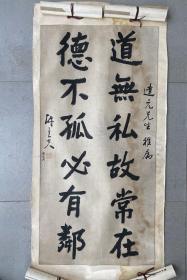 達元先生雅屬
道無私故常在
德不孤必有鄰
陳立夫